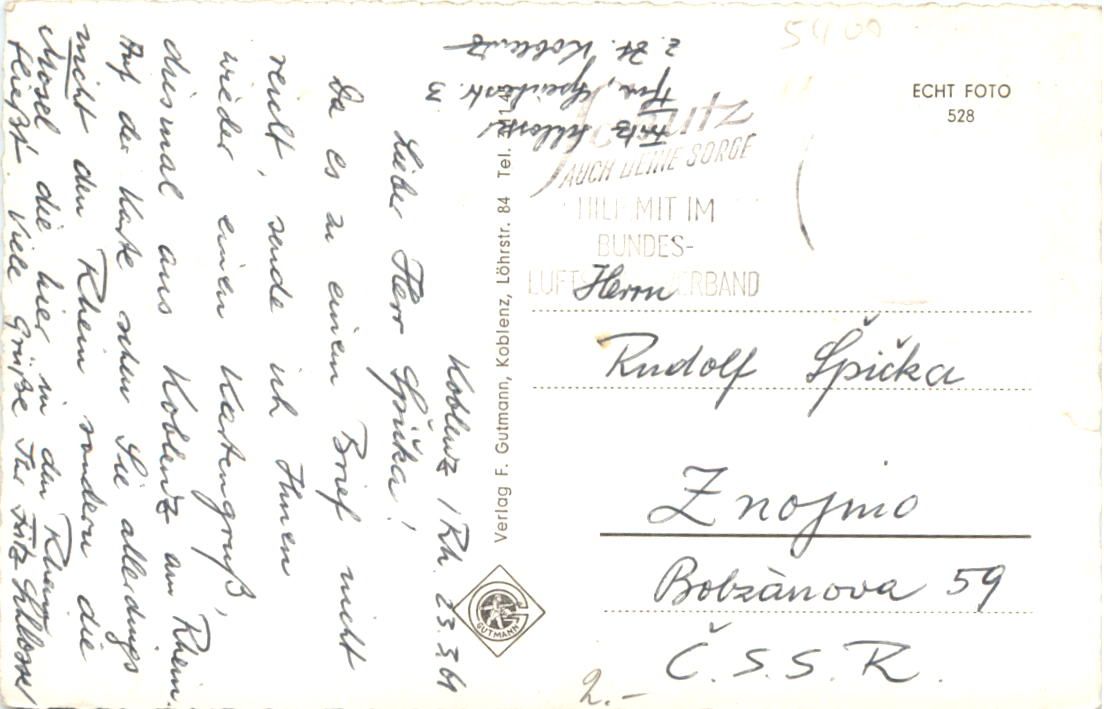 Koblenz / Rh. 23.3.61
Lieber Herr Špička!
Da es zu einem Brief nicht
reicht, sende ich Ihnen
wieder einen Kartengruß,
diesmal aus Koblenz am Rhein.
Auf der Karte sehen Sie allerdings
nicht den Rhein sondern die
Mosel die hier in den Rhein
fließt. Viele Grüße Ihr Fritz Schlosser
Fritz Schlosser
z. Zt. Koblenz
Verlag F. Gutmann, Koblenz, Löhrstr. 84 Tel.
GUTMANN
ECHT FOTO
528
AUCH DEINE SORGE
HILF MIT IM
BUNDES-
Herrn
Rudolf Špička
Znojmo
Bobzánova 59
Č.S.S.R.
2.-